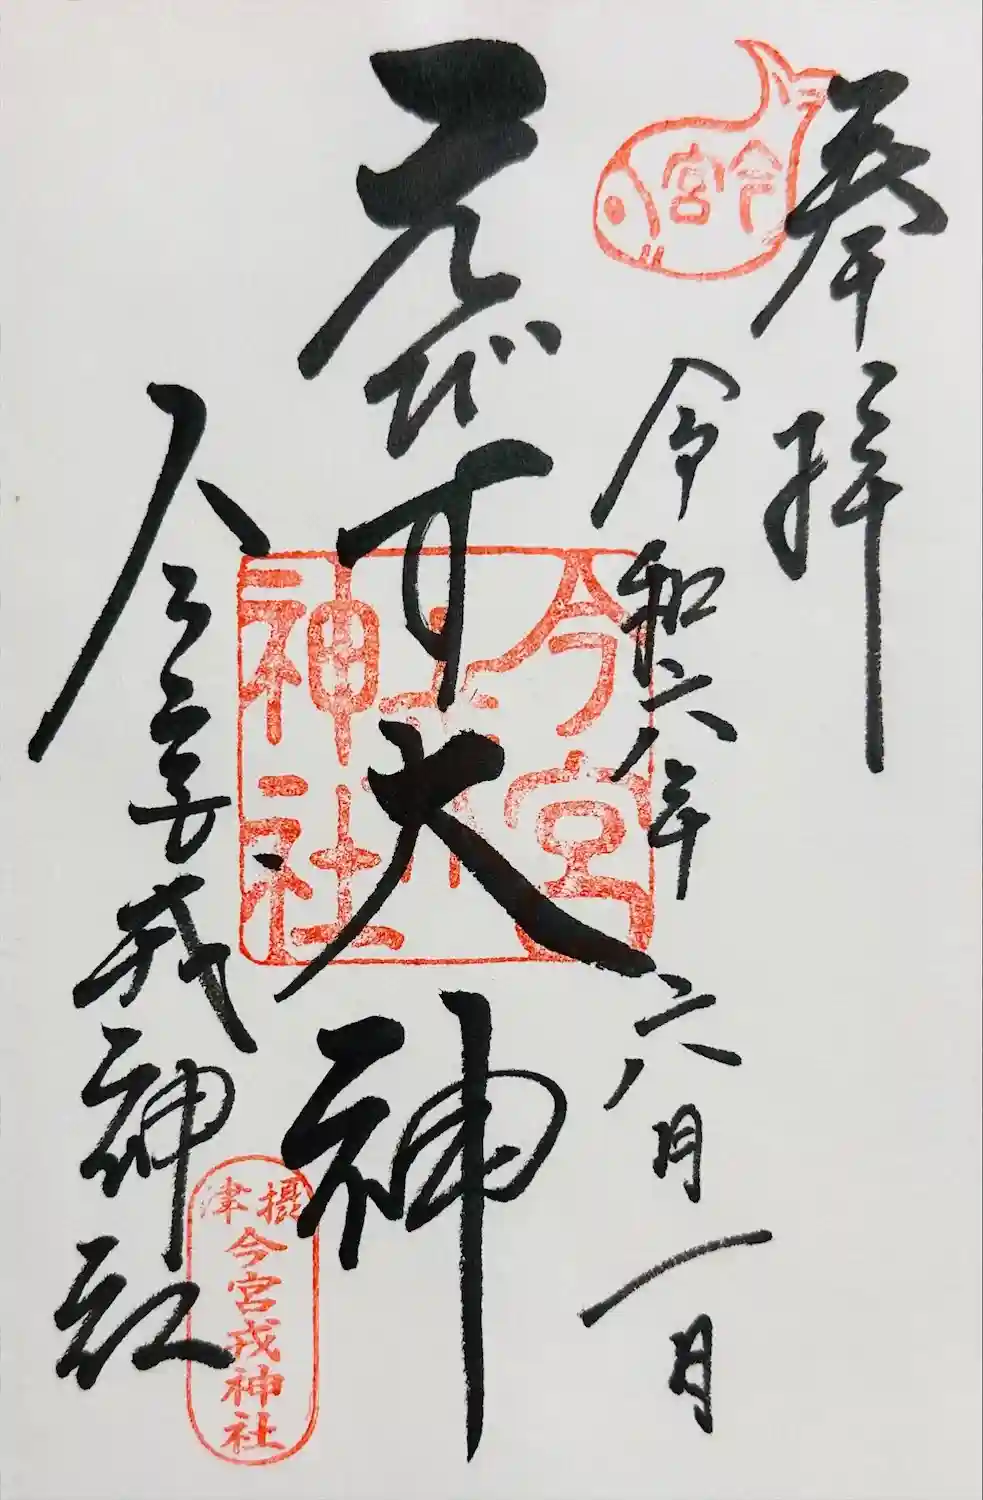 奉拝
今宮
令和六年六月一日
えびす大神
今宮戎神社
今宮戎神社
摂津
今宮戎神社